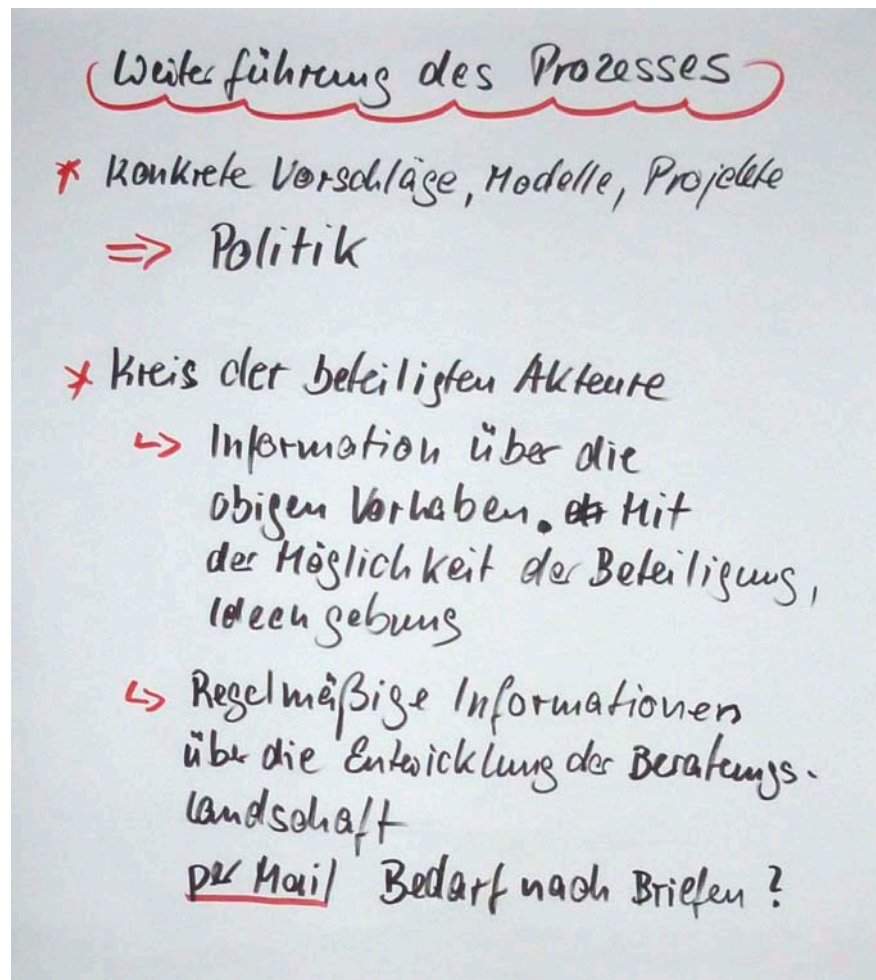 Weiterführung des Prozesses
* Konkrete Vorschläge, Modelle, Projekte
=> Politik
* Kreis der beteiligten Akteure
↳ Information über die
obigen Vorhaben. Mit
der Möglichkeit der Beteiligung,
Ideengebung
↳ Regelmäßige Informationen
über die Entwicklung der Beratungs-
landschaft
per Mail Bedarf nach Briefen?